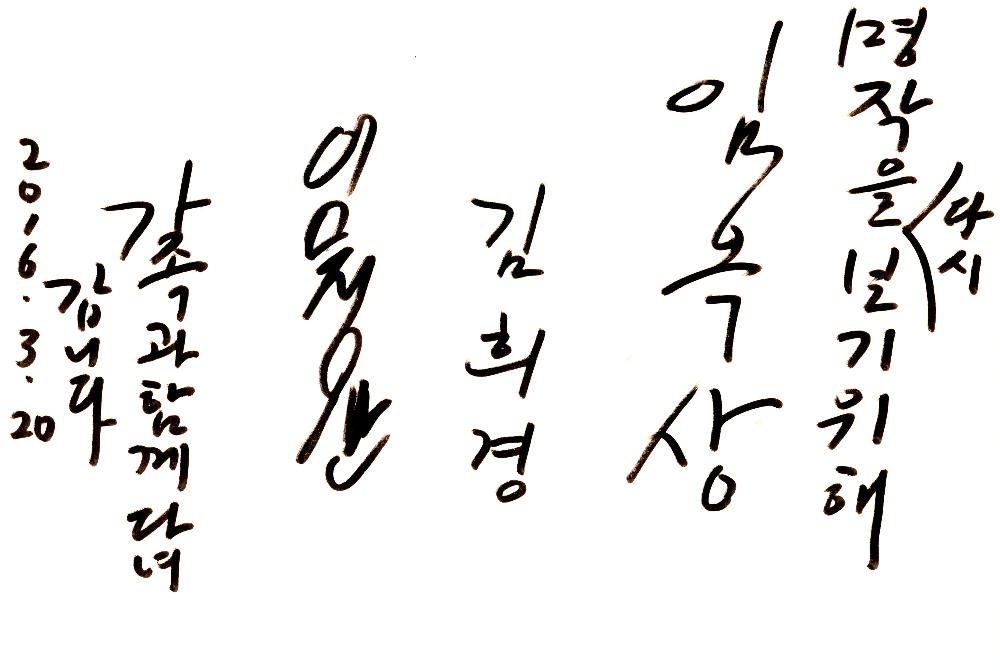 다시
명작을보기위해
임옥상
김희경
가족과함께다녀
갑니다
2016.3.20